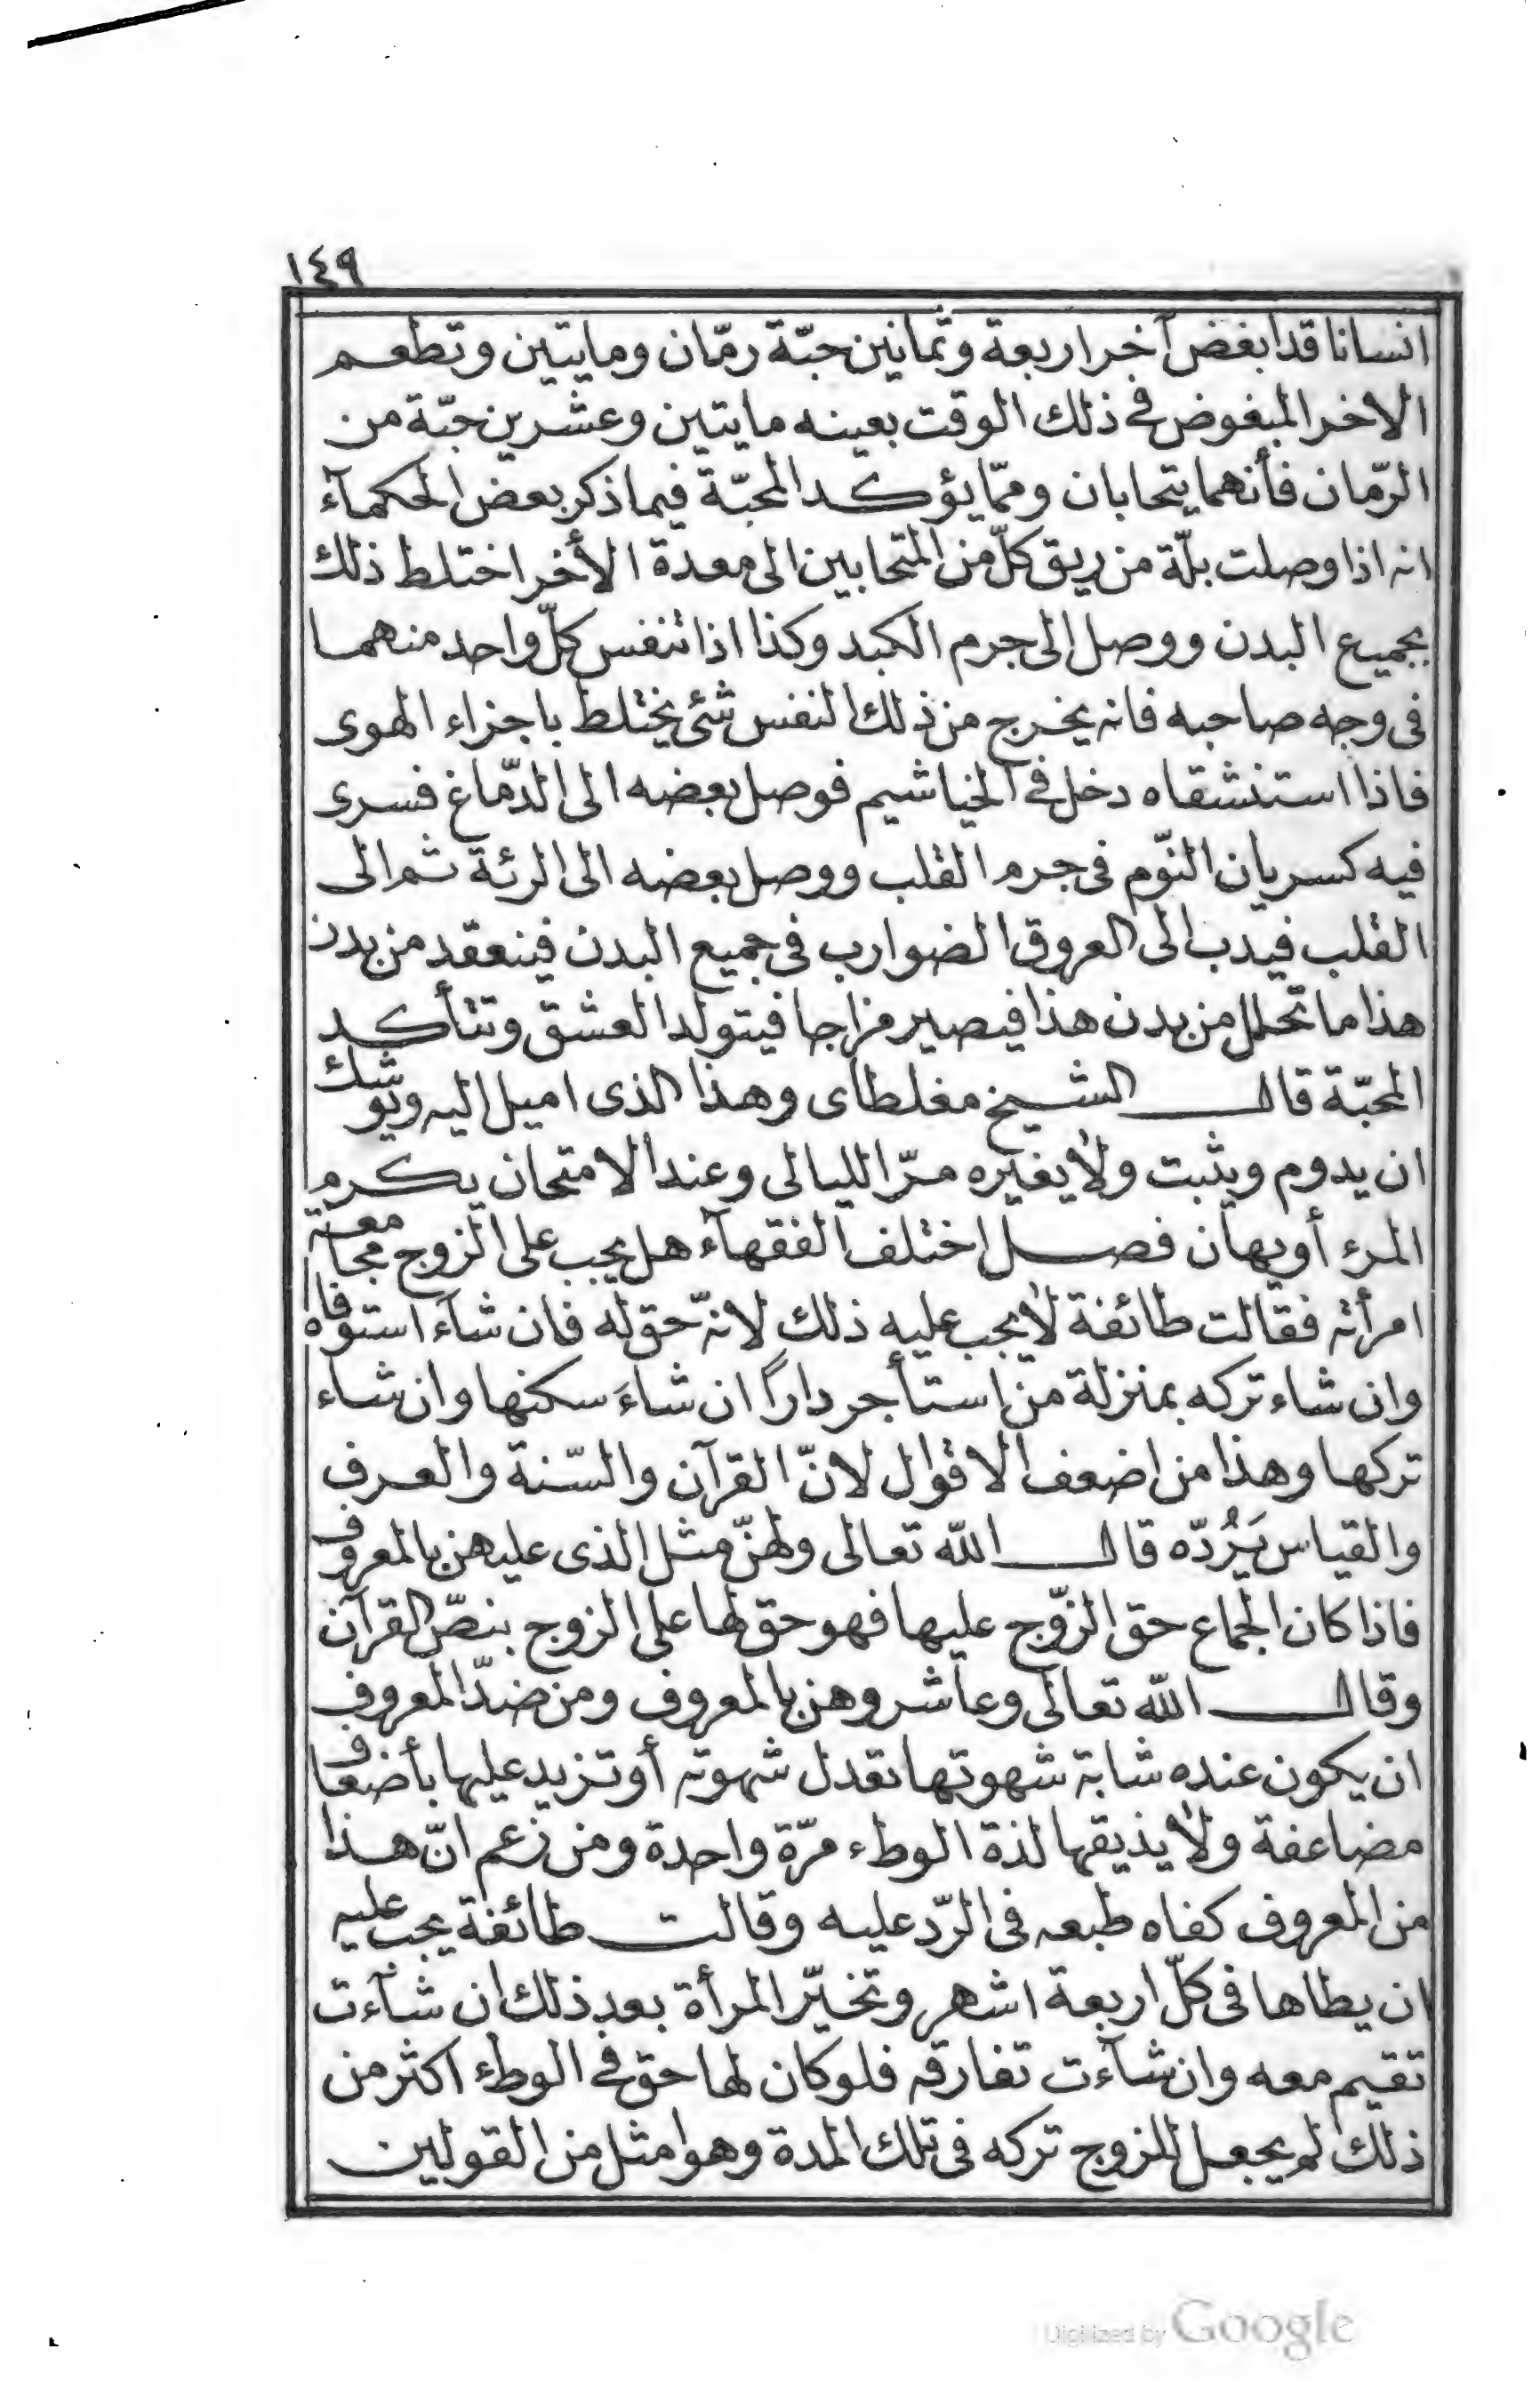 ١٤٩
انسانا قد ابغض آخر اربعة وثمانين حبّة رمّان ومايتين وتطعم
الاخر المبغوض فى ذلك الوقت بعينه مايتين وعشرين حبّة من
الرّمان فأنهما يتحابان وممّا يؤكد المحبّة فيما ذكر بعض الحكمآء
انه اذا وصلت بلّة من ريق كلّ من المتحابين الى معدة الأخر اختلط ذلك
بجميع البدن ووصل الى جرم الكبد وكذا اذا تنفس كلّ واحد منهما
فى وجه صاحبه فانه يخرج من ذلك النفس شئ يختلط باجزاء الهوى
فاذا استنشقاه دخل فى الخياشيم فوصل بعضه الى الدّماغ فسرى
فيه كسريان النّوم فى جرم القلب ووصل بعضه الى الرئة ثم الى
القلب فيدب الى العروق الضوارب فى جميع البدن فينعقد من بدن
هذا ما تحلل من بدن هذا فيصير مزاجا فيتولد العشق وتتأكد
المحبّة قال الشيخ مغلطاى وهذا الذى اميل اليه ويوشك
ان يدوم ويثبت ولا يغيّره مرّ الليالى وعند الامتحان يكرم
المرء أو يهان فصل اختلف الفقهآء هل يجب على الزوج مجامعة
امرأته فقالت طائفة لا يجب عليه ذلك لانّه حق له فان شآء استوفاه
وان شاء تركه بمنزلة من استأجر داراً ان شاءَ سكنها وان شاء
تركها وهذا من اضعف الاقوال لانّ القرآن والسّنة والعرف
والقياس يَرُدّه قال الله تعالى ولهنّ مثل الذى عليهن بالمعروف
فاذا كان الجماع حق الزّوج عليها فهو حق لها على الزوج بنصّ القرآن
وقال الله تعالى وعاشروهن بالمعروف ومن ضدّ المعروف
ان يكون عنده شابة شهوتها تعدل شهوته أو تزيد عليها بأضعاف
مضاعفة ولا يذيقها لذة الوطء مرّة واحدة ومن زعم انّ هذا
من المعروف كفاه طبعه فى الرّد عليه وقالت طائفة يجب عليه
ان يطاها فى كلّ اربعة اشهر وتخيّر المرأة بعد ذلك ان شآءت
تقيم معه وان شآءت تفارقه فلو كان لها حق فى الوطء اكثر من
ذلك لم يجعل للزوج تركه فى تلك المدة وهو امثل من القولين
Digitized by Google